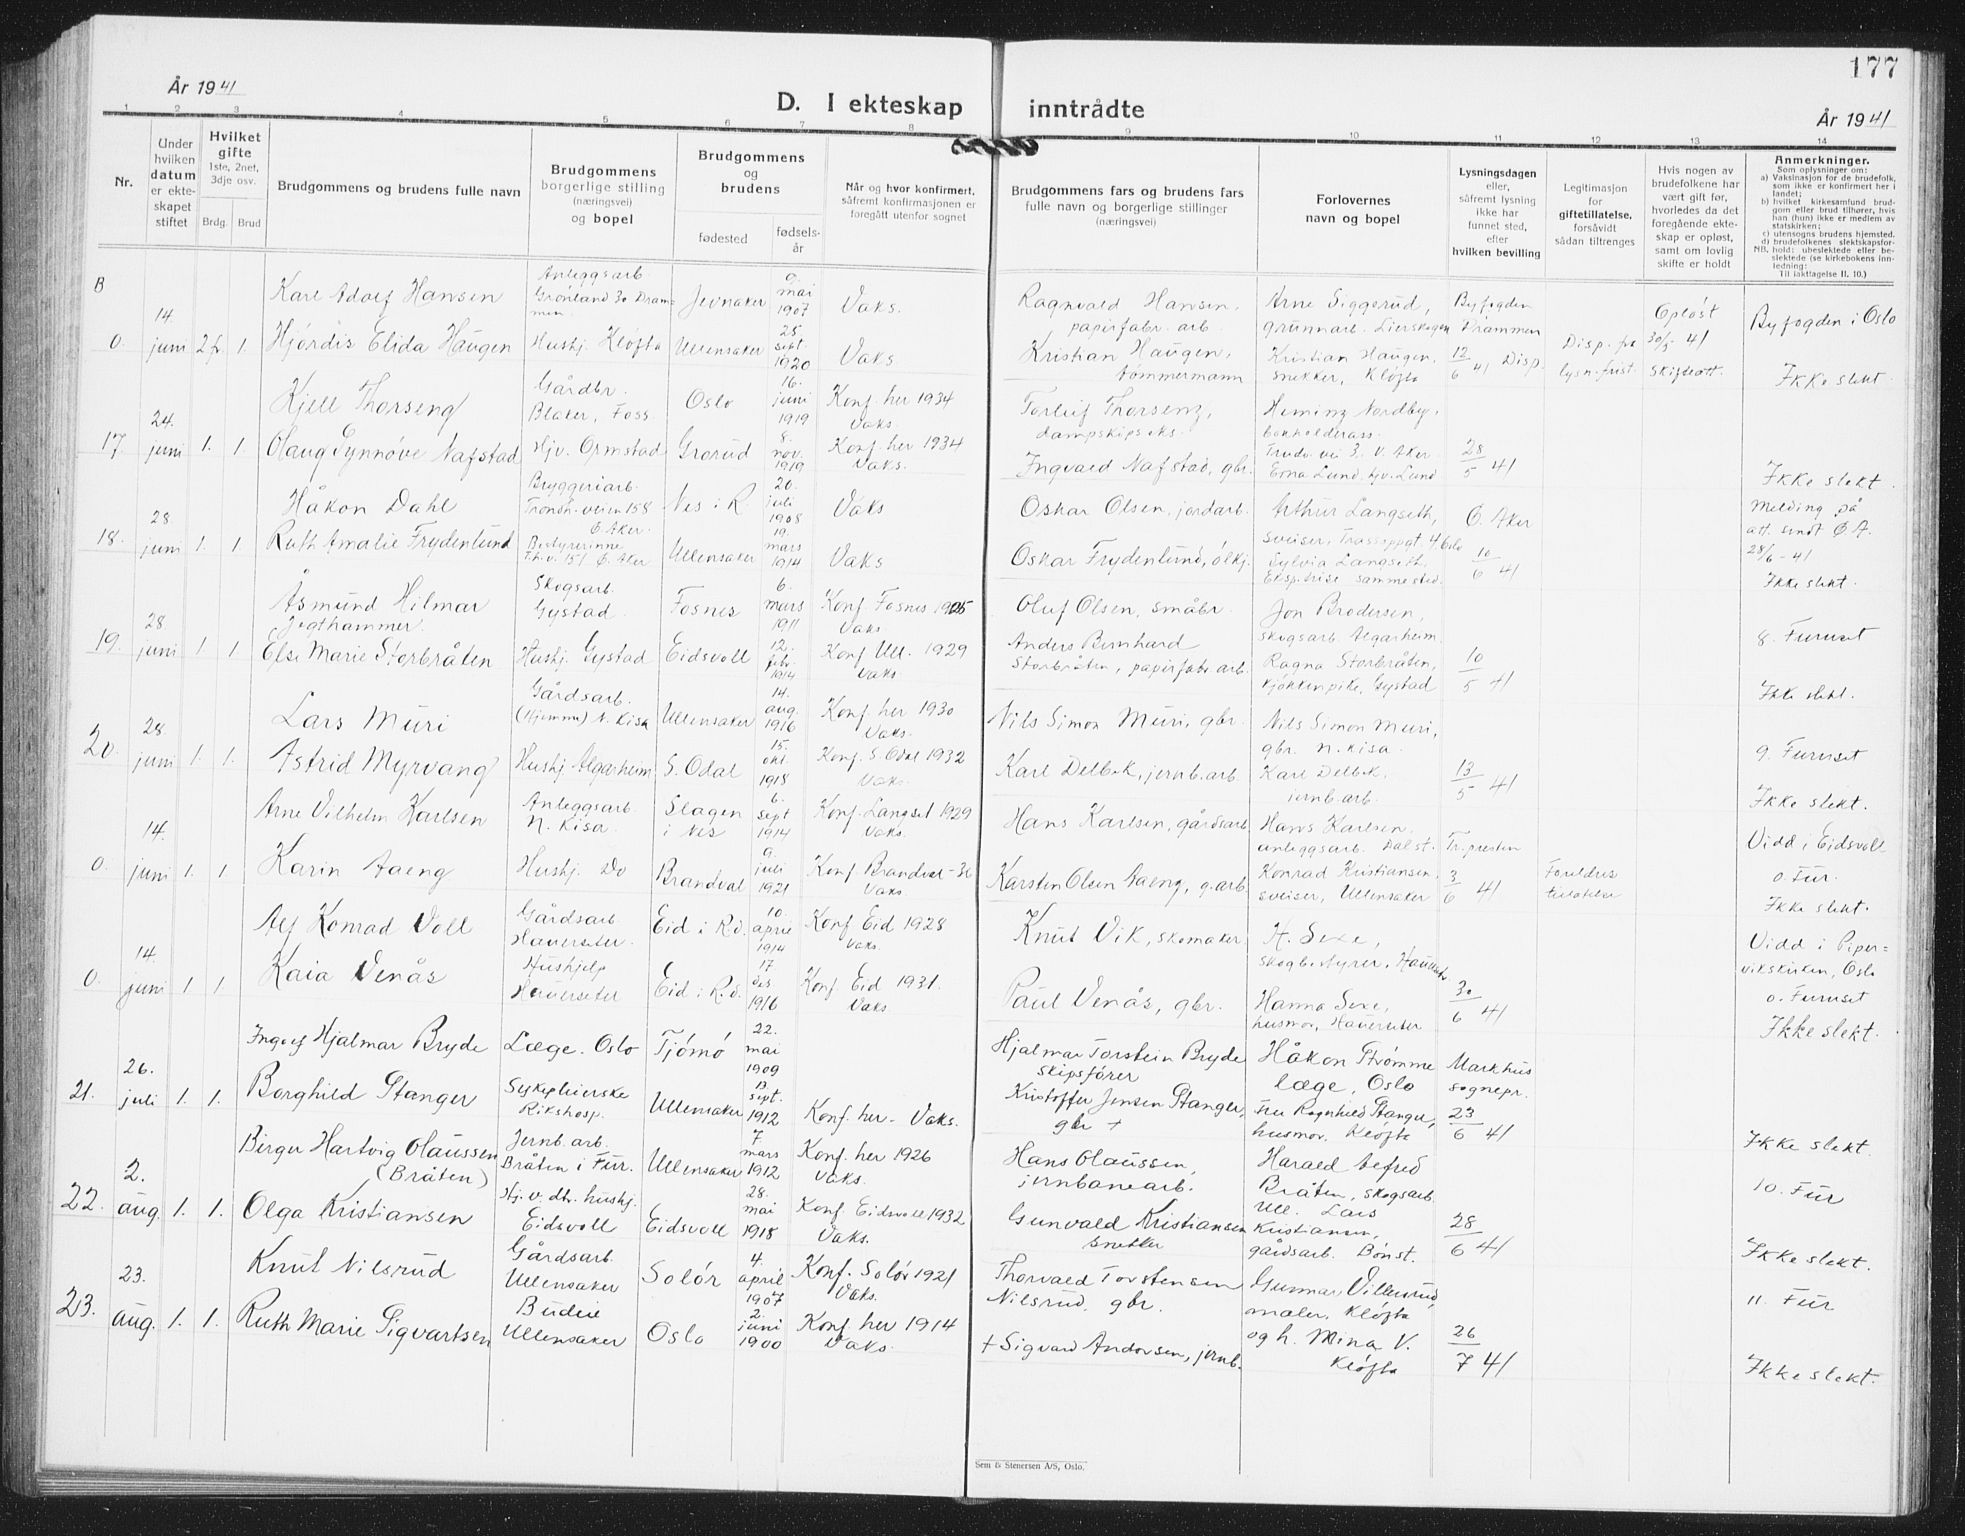 177
År 1941
D. I ekteskap inntrådte
År 1941
1 2 3 4 5 6 7 8 9 10 11 12 13 14
Nr.
Under hvilken datum er ekteskapet stiftet
Hvilket gifte
1ste, 2net, 3dje osv.
Brdg. Brud
Brudgommens og brudens fulle navn
Brudgommens borgerlige stilling (næringsvei) og bopel
Brudgommens og brudens
fødested
fødselsår
Når og hvor konfirmert, såfremt konfirmasjonen er foregått utenfor sognet
Brudgommens fars og brudens fars fulle navn og borgerlige stillinger (næringsvei)
Forlovernes navn og bopel
Lysningsdagen eller, såfremt lysning ikke har funnet sted, efter hvilken bevilling
Legitimasjon for giftetillatelse, forsåvidt sådan tiltrenges
Hvis nogen av brudefolkene har vært gift før, hvorledes da det foregående ekteskap er opløst, samt om lovlig skifte er holdt
Anmerkninger.
Som oplysninger om:
a) Vaksinasjon for de brudefolk, som ikke er konfirmert her i landet;
b) hvilket kirkesamfund brudgom eller brud tilhører, hvis han (hun) ikke er medlem av statskirken;
c) utensogns brudens hjemsted.
d) brudefolkenes slektskapsforhold: ubeslektede eller beslektede (se kirkebokens innledning:
NB. Til iakttagelse II. 10.)
B
0. 14. juni 2 fr. 1.
Karl Adolf Hansen
Anleggsarb. Grønland 30 Drammen
Jevnaker
9. mai 1907
Vaks.
Ragnvald Hansen, papirfabr. arb.
Arne Siggerud, grunnarb. Lierskogen
Byfogden Drammen
Opløst 30/5 41
Byfogden i Oslo
Hjördis Elida Haugen
Hushj. Kløfta
Ullensaker
25. sept. 1920
Vaks
Kristian Haugen, tømmermann
Kristian Haugen, snekker, Kløfta
12/6 41 Disp.
Disp. fra lysn. frist.
Skifteatt.
Ikke slekt.
17. 24. juni 1. 1.
Kjell Thorseng
Gårdbr. Blaker, Foss.
Oslo
16. juni 1919
Konf. her 1934 Vaks.
Torleif Thorseng, dampskipseks.
Heming Nordby, bokholderass.
Olaug Synnøve Nafstad
Hjv. Ormstad
Grorud
8. nov. 1919
Konf. her 1934 Vaks.
Ingvald Nafstad, gbr.
Erna Lund, hjv. Lund
28/5 41
Ikke slekt.
18. 28. juni 1. 1.
Håkon Dahl
Bryggeriarb. Trondh.veien 158 Ø. Aker.
Nes i R.
20. juli 1908
Vaks
Oskar Olsen, jordarb.
Arthur Langseth, sveiser,
Ø. Aker
Melding på att. sendt Ø. A. 28/6 - 41
Ruth Amalie Frydenlund
Bestyrerinne T.h.v. 151 Ø. Aker
Ullensaker
19. mars 1914
Vaks
Oskar Frydenlund, ølkj.
Sylvia Langseth, Eksp.trise sammested.
10/6 41
Ikke slekt.
19. 28. juni 1. 1.
Åsmund Hilmar Jegthammer.
Skogsarb. Gystad
Fosnes
6. mars 1911
Konf. Fosnes 1925 Vaks.
Oluf Olsen, småbr.
Jon Brodersen, skogsarb. Algarheim.
8. Furuset
Else Marie Storbråten
Hushj. Gystad
Eidsvoll
12. febr. 1914
Konf. Ull. 1929 Vaks.
Anders Bernhard Storbråten, papirfabr. arb.
Ragna Storbråten, kjøkkenpike, Gystad
10/5 41
Ikke slekt.
20. 28. juni 1. 1.
Lars Muri
Gårdsarb. (Hjemme) N. Kisa
Ullensaker
14. aug. 1916
Konf. her 1930 Vaks.
Nils Simon Muri, gbr.
Nils Simon Muri, gbr. N. Kisa.
9. Furuset
Astrid Myrvang
Hushj. Algarheim
S. Odal
15. okt. 1918
Konf. S. Odal 1932 Vaks.
Karl Delbek, jernb.arb.
Karl Delbek, jernb.arb.
13/5 41
Ikke slekt.
0. 14. juni 1. 1.
Arne Vilhelm Karlsen
Anleggsarb. N. Kisa.
Slagen i Nes
6. sept 1914
Konf. Langset 1929 Vaks.
Hans Karlsen, gårdsarb.
Hans Karlsen, anleggsarb. Dal st.
Tr. presten
Vidd i Eidsvoll
Karin Gaeng
Hushj. Do
Brandval
9. juli 1921
Konf. Brandval -36 Vaks.
Karsten Olsen Gaeng, g.arb.
Konrad Kristiansen, sveiser, Ullensaker
3/6 41
Foreldres tillatelse
o. Fur.
Ikke slekt.
0. 14. juni 1 1.
Alf Konrad Voll
Gårdsarb. Hauerseter.
Eid i R.d.
10. april 1914
Konf. Eid 1928 Vaks.
Knut Vik, skomaker.
H. Sexe, skogbestyrer,
Vidd i Pipervikskirken, Oslo
Kaia Venås
Hushjelp Hauerseter
Eid i R.d.
17 des 1916
Konf. Eid 1931. Vaks.
Paul Venås, gbr.
Hanna Sexe, husmor, Hauerseter
30/6 41
o. Furuset
Ikke slekt.
21. 26. juli 1. 1.
Ingolf Hjalmar Bryde
Læge. Oslo
Tjömö
22. mai 1909
Hjalmar Torstein Bryde skipsfører
Håkon Strømme læge, Oslo
Markhus sognepr.
Borghild Stanger
Sykepleierske Rikshosp.
Ullensaker
13. sept. 1912
Konf. her - Vaks.
Kristoffer Jensen Stanger, gbr +
Fru Ragnhild Stanger, husmor. Kløfta
23/6 41
Ikke slekt.
22. 2. aug. 1. 1.
Birger Hartvig Olaussen (Bråten)
Jernb. arb. Bråten i Fur.
Ullensaker
7 mars 1912
Konf. her 1926 Vaks.
Hans Olaussen, jernbanearb.
Harald Alfred Bråten, skogsarb. Ull.
10. Fur
Olga Kristiansen
Hj. v. dtr. hushj. Eidsvoll
Eidsvoll
28. mai 1918
Konf. Eidsvoll 1932 Vaks.
Gunvald Kristiansen snekker
Lars Kristiansen, gårdsarb. Bønst.
28/6 41
Ikke slekt.
23. 23. aug. 1. 1.
Knut Nilsrud
Gårdsarb. Ullensaker
Solör
4. april 1907
Konf. Solör 1921 Vaks.
Thorvald Torstensen Nilsrud, gbr.
Gunnar Villerud, maler, Kløfta
11. Fur
Ruth Marie Sigvartsen
Budeie Ullensaker
Oslo
2. juni 1900
Konf. her 1914 Vaks.
+ Sigvard Andersen, jernb.
og h. Mina V. Kløfta
26/7 41
Ikke slekt.
Sem & Stenersen A/S, Oslo.